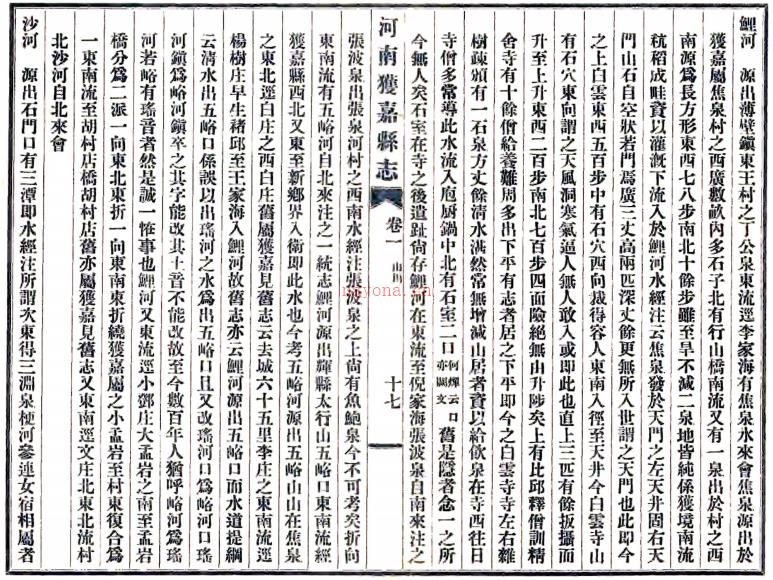 鯉河　源出薄壁鎮東王村之丁公泉東流逕李家海有焦泉水來會焦泉源出於
獲嘉屬焦泉村之西廣數畝内多石子北有行山橋南流又有一泉出於村之西
南源爲長方形東西七八步南北十餘步雖至旱不減二泉地皆純係獲境南流
秔稻成畦資以灌漑下流入於鯉河水經注云焦泉發於天門之左天井固右天
門山石自空狀若門焉廣三丈高兩匹深丈餘更無所入世謂之天門也此即今
之上白雲東西五百步中有石穴西向裁得容人東南入徑至天井今白雲寺山
有石穴東向謂之天風洞寒氣逼人無人敢入或即此也直上三匹有餘扳攝而
升至上升東西二百步南北七百步四面險絕無由升陟矣上有比邱釋僧訓精
舍寺有十餘僧給養難周多出下平有志者居之下平即今之白雲寺寺左右雜
樹疎頒有一石泉方丈餘清水湛然常無增減山居者資以給飲泉在寺西往日
寺僧多常導此水流入庖厨鍋中北有石室二口何焯云口亦闕文舊是隱者念一之所
今無人矣石室在寺之後遺趾尚存鯉河在東流至倪家海張波泉自南來注之
河南獲嘉縣志　卷一　山川　十七
張波泉出張泉河村之西南水經注張波泉之上尚有魚鮑泉今不可考矣折向
東南流有五峪河自北來注之一統志鯉河源出輝縣太行山五峪口東南流經
獲嘉縣西北又東至新鄉界入衛即此水也今考五峪河源出五峪山山在焦泉
之東北逕白庄之西白庄舊屬獲嘉見舊志云去城六十五里李庄之東南流逕
楊樹庄早生豬邱至王家海入鯉河故舊志亦云鯉河源出五峪口而水道提綱
云清水出五峪口係誤以出瑤河之水爲出五峪口且又改瑤河口爲峪河口瑤
河鎭爲峪河鎭卒之其字能改其土音不能改故至今數百年人猶呼峪河爲瑤
河若峪有瑤音者然是誠一恠事也鯉河又東流逕小鄧庄大孟岩之南至孟岩
橋分爲二派一向東北東折一向東南東折繞獲嘉屬之小孟岩至村東復合爲
一東南流至胡村店橋胡村店舊亦屬獲嘉見舊志又東南逕文庄北東北流村
北沙河自北來會
沙河　源出石門口有三潭即水經注所謂次東得三淵泉梗河參連女宿相屬者